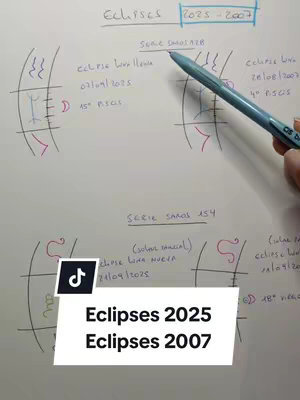 ECLIPSES 2025 - 2007
SERIE SAROS 128
eclipse luna llena
07/09/2025
15º PISCIS
eclipse luna
28/08/2007
4º PISCIS
SERIE SAROS 154
(solar parcial)
eclipse
luna nueva
21/09/2025
(solar
eclipse
luna
11/09/
18º VIRGO
Eclipses 2025
Eclipses 2007